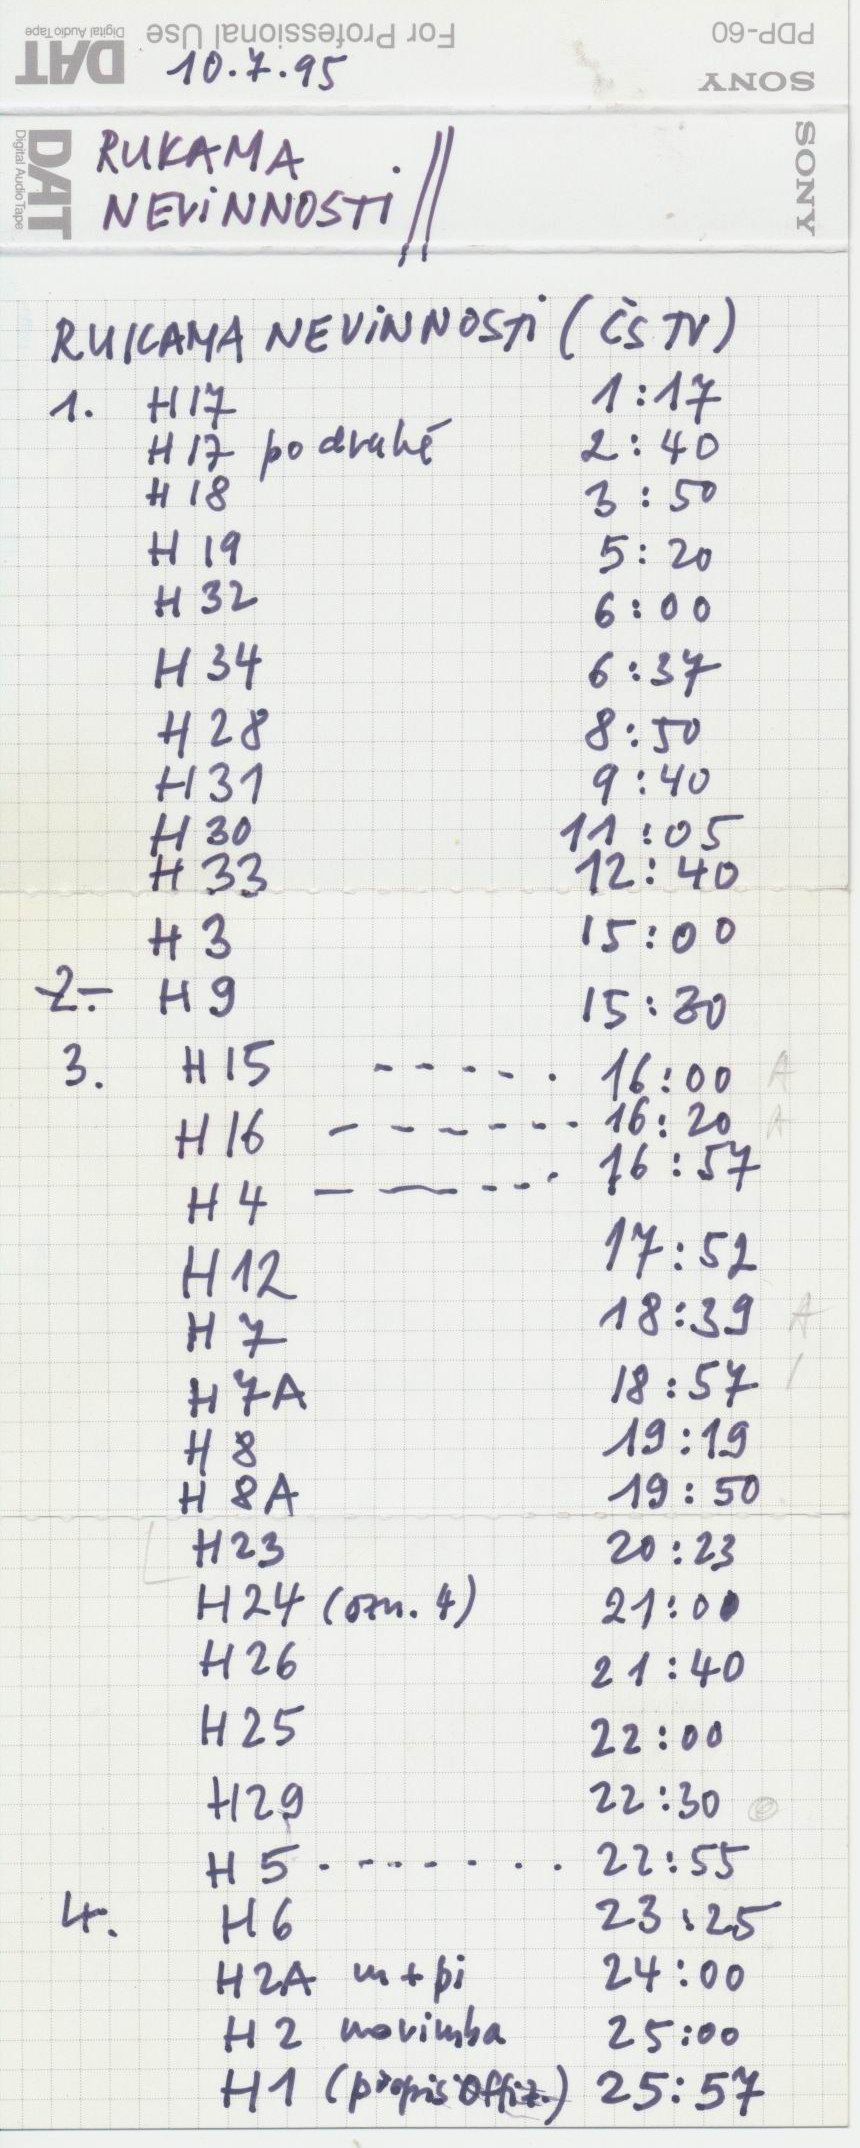 PDP-60
For Professional Use
DAT
Digital Audio Tape
SONY
10.7.95
DAT
Digital Audio Tape
RUKAMA
NEViNNOSTi
SONY
RUKAMA NEViNNOSTi (ČS TV)
1. H17 1:17
H17 podruhé 2:40
H18 3:50
H19 5:20
H32 6:00
H34 6:37
H28 8:50
H31 9:40
H30 11:05
H33 12:40
H3 15:00
2. H9 15:30
3. H15 ----. 16:00 A
H16 ------ 16:20 A
H4 ----. 16:57
H12 17:52
H7 18:39 A
H7A 18:57 /
H8 19:19
H8A 19:50
H23 20:23
H24 (ozn. 4) 21:00
H26 21:40
H25 22:00
H29 22:30
H5 ........ 22:55
4. H6 23:25
H2A m+pi 24:00
H2 marimba 25:00
H1 25:57